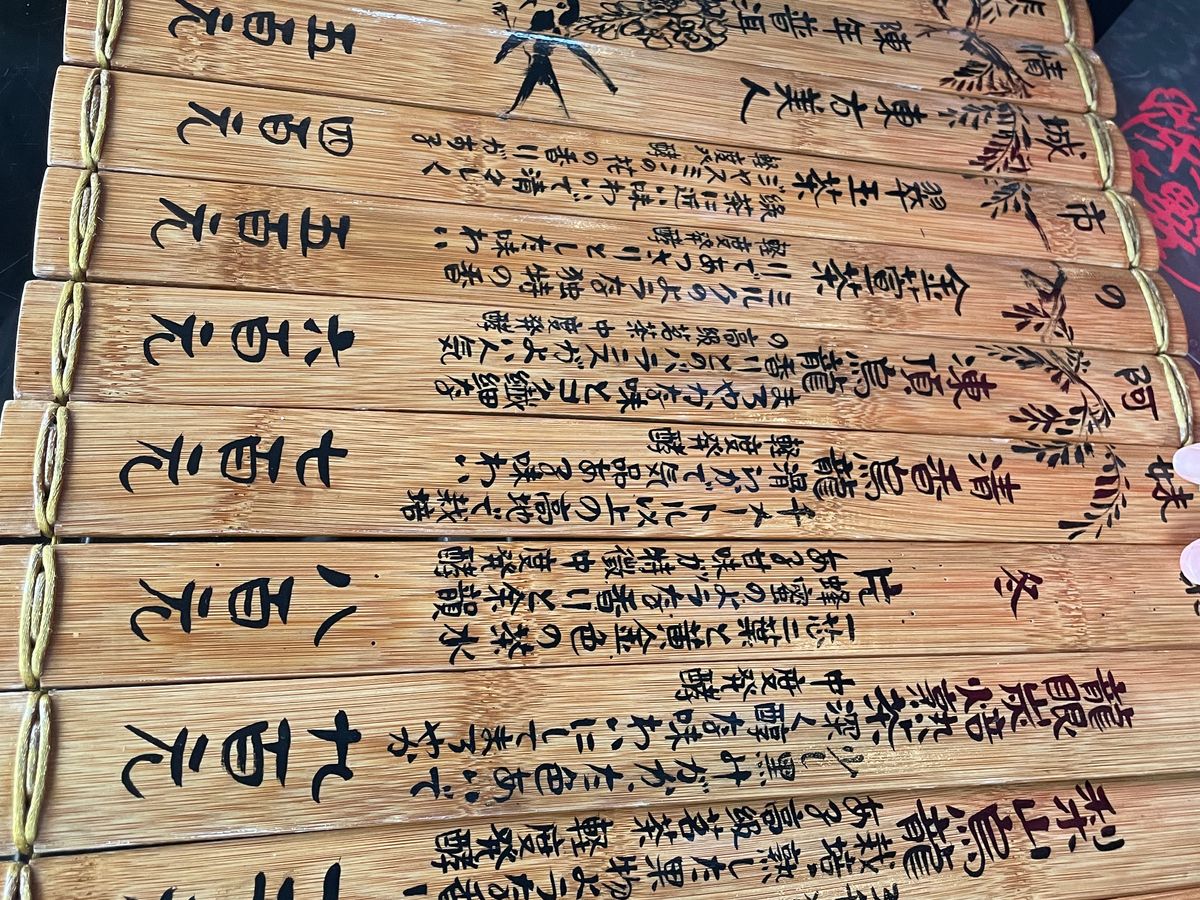 情城市の阿妹
梨山烏龍
栽培。熟した果物のような香り
ある高級茗茶
軽度発酵
龍眼炭焙
少し黒みがかった色あいで
深く醇な味わいにしてまろやか
中度発酵
九百元
冬片
一芯二葉と黄金色の茶水
蜂蜜のような香りと余韻
ある甘味が特徴 中度発酵
八百元
清香烏龍
千メートル以上の高地で栽培
滑らかで気品ある味わい
軽度発酵
七百元
凍頂烏龍
まろやかな味とコク繊細な
香りとのバランスがよい人気
の高級茗茶中度発酵
六百元
金萱茶
ミルクのような独特の香
りであっさりとした味わい
軽度発酵
五百元
翠玉茶
緑茶に近い味わいで清々しく
ジャスミンの花の香りがある
軽度発酵
四百元
東方美人
陳年普洱
五百元